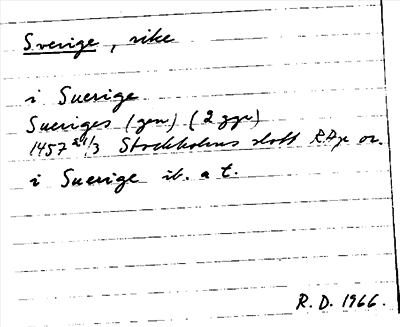 Sverige, rike
i Suerige
Sueriges (gen.) (2 ggr)
1457 24/3 Stockholms slott RAp or.
i Suerige ib. a t.
R. D. 1966.